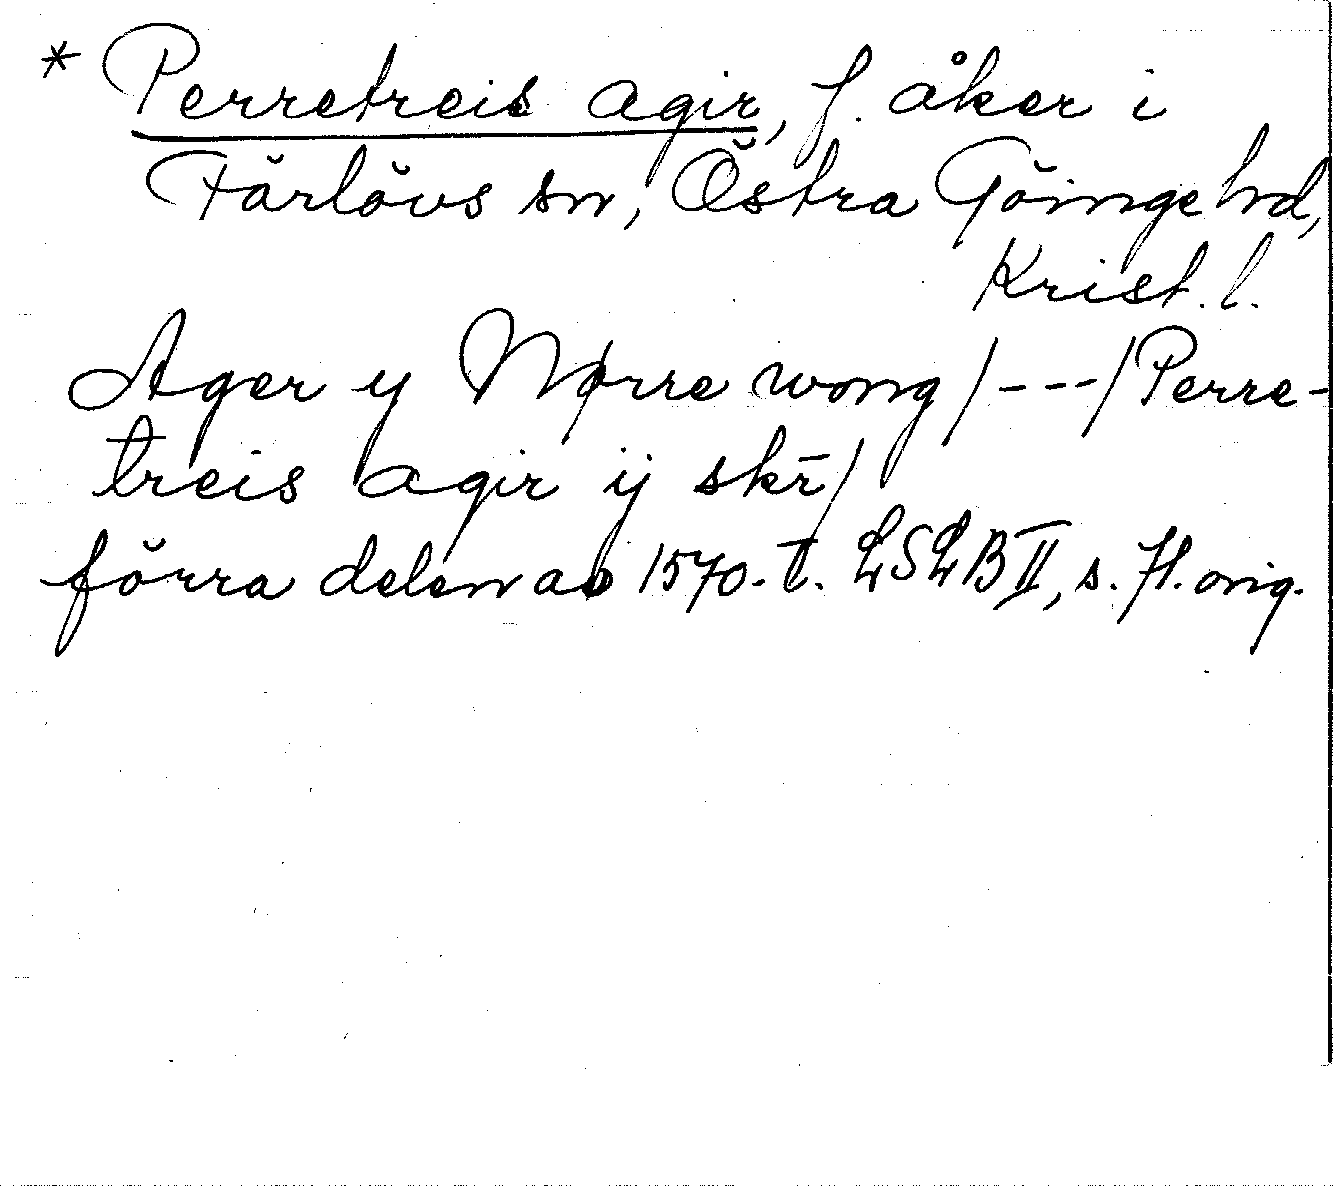 * Perretreis agir, f. åker i
Färlövs sn, Östra Göinge hd,
Krist. l.
Ager y Nørre wong /---/ Perre-
treis agir ij skr̄/
förra delen av 1570-t. LSLB II, s. 71. orig.